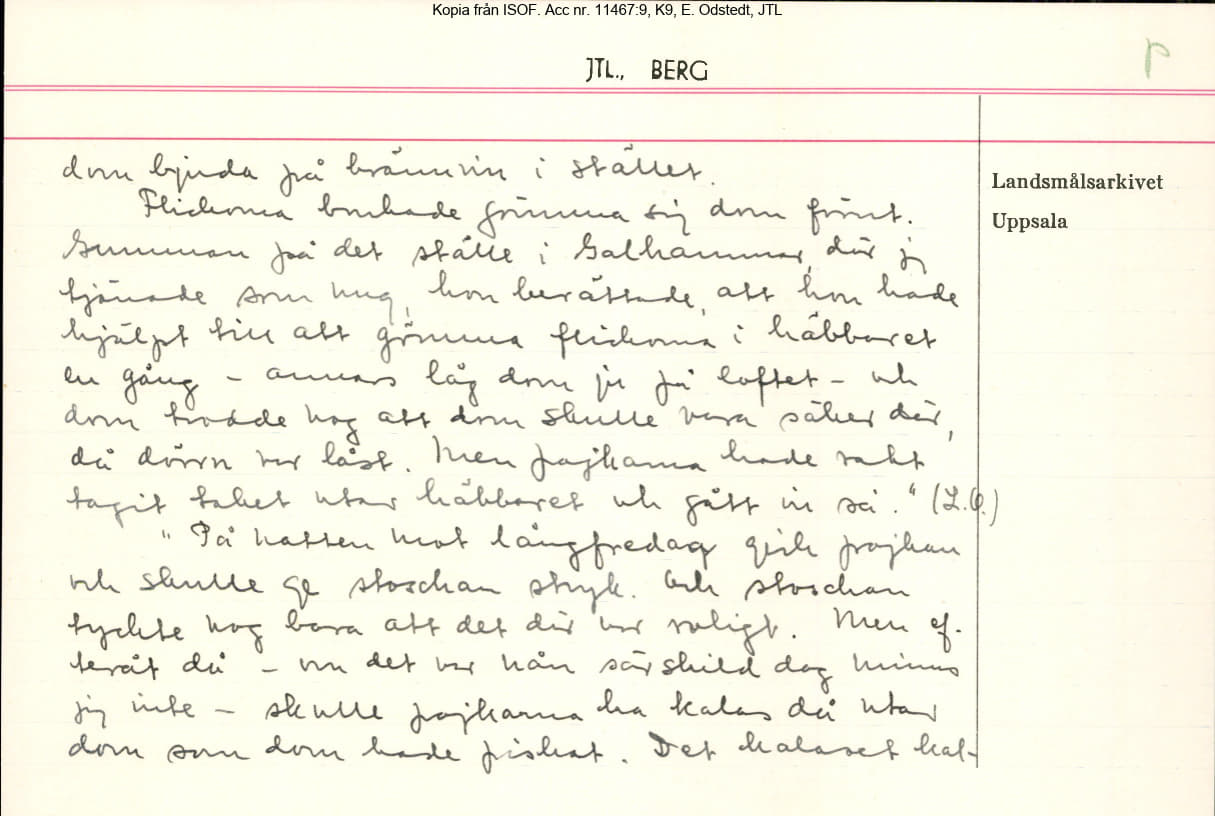 Kopia från ISOF. Acc nr. 11467:9, K9, E. Odstedt, JTL
JTL., BERG
P
Landsmålsarkivet
Uppsala
dom bjuda på brännvin i stället.
Flickorna brukade gömma sig dom främt.
Gumman på det ställe i Galhammar, där jg
tjänade som ung, hon berättade, att hon hade
hjälpt till att gömma flickorna i häbbaret
en gång – annars låg dom ju på loftet – och
dom trodde nog att dom skulle vara säker där,
då dörrn var låst. Men pojkarna hade rakt
tagit taket utav häbbaret och gått in så." (L.Ö.)
"På natten mot långfredag gick pojkan
och skulle ge stoschan stryk. Och stoschan
tyckte nog bara att det där var roligt. Men ef-
teråt då – om det var nån särskild dag minns
jg inte – skulle pojkarna ha kalas då utav
dom som dom hade piskat. Det kalaset kal-